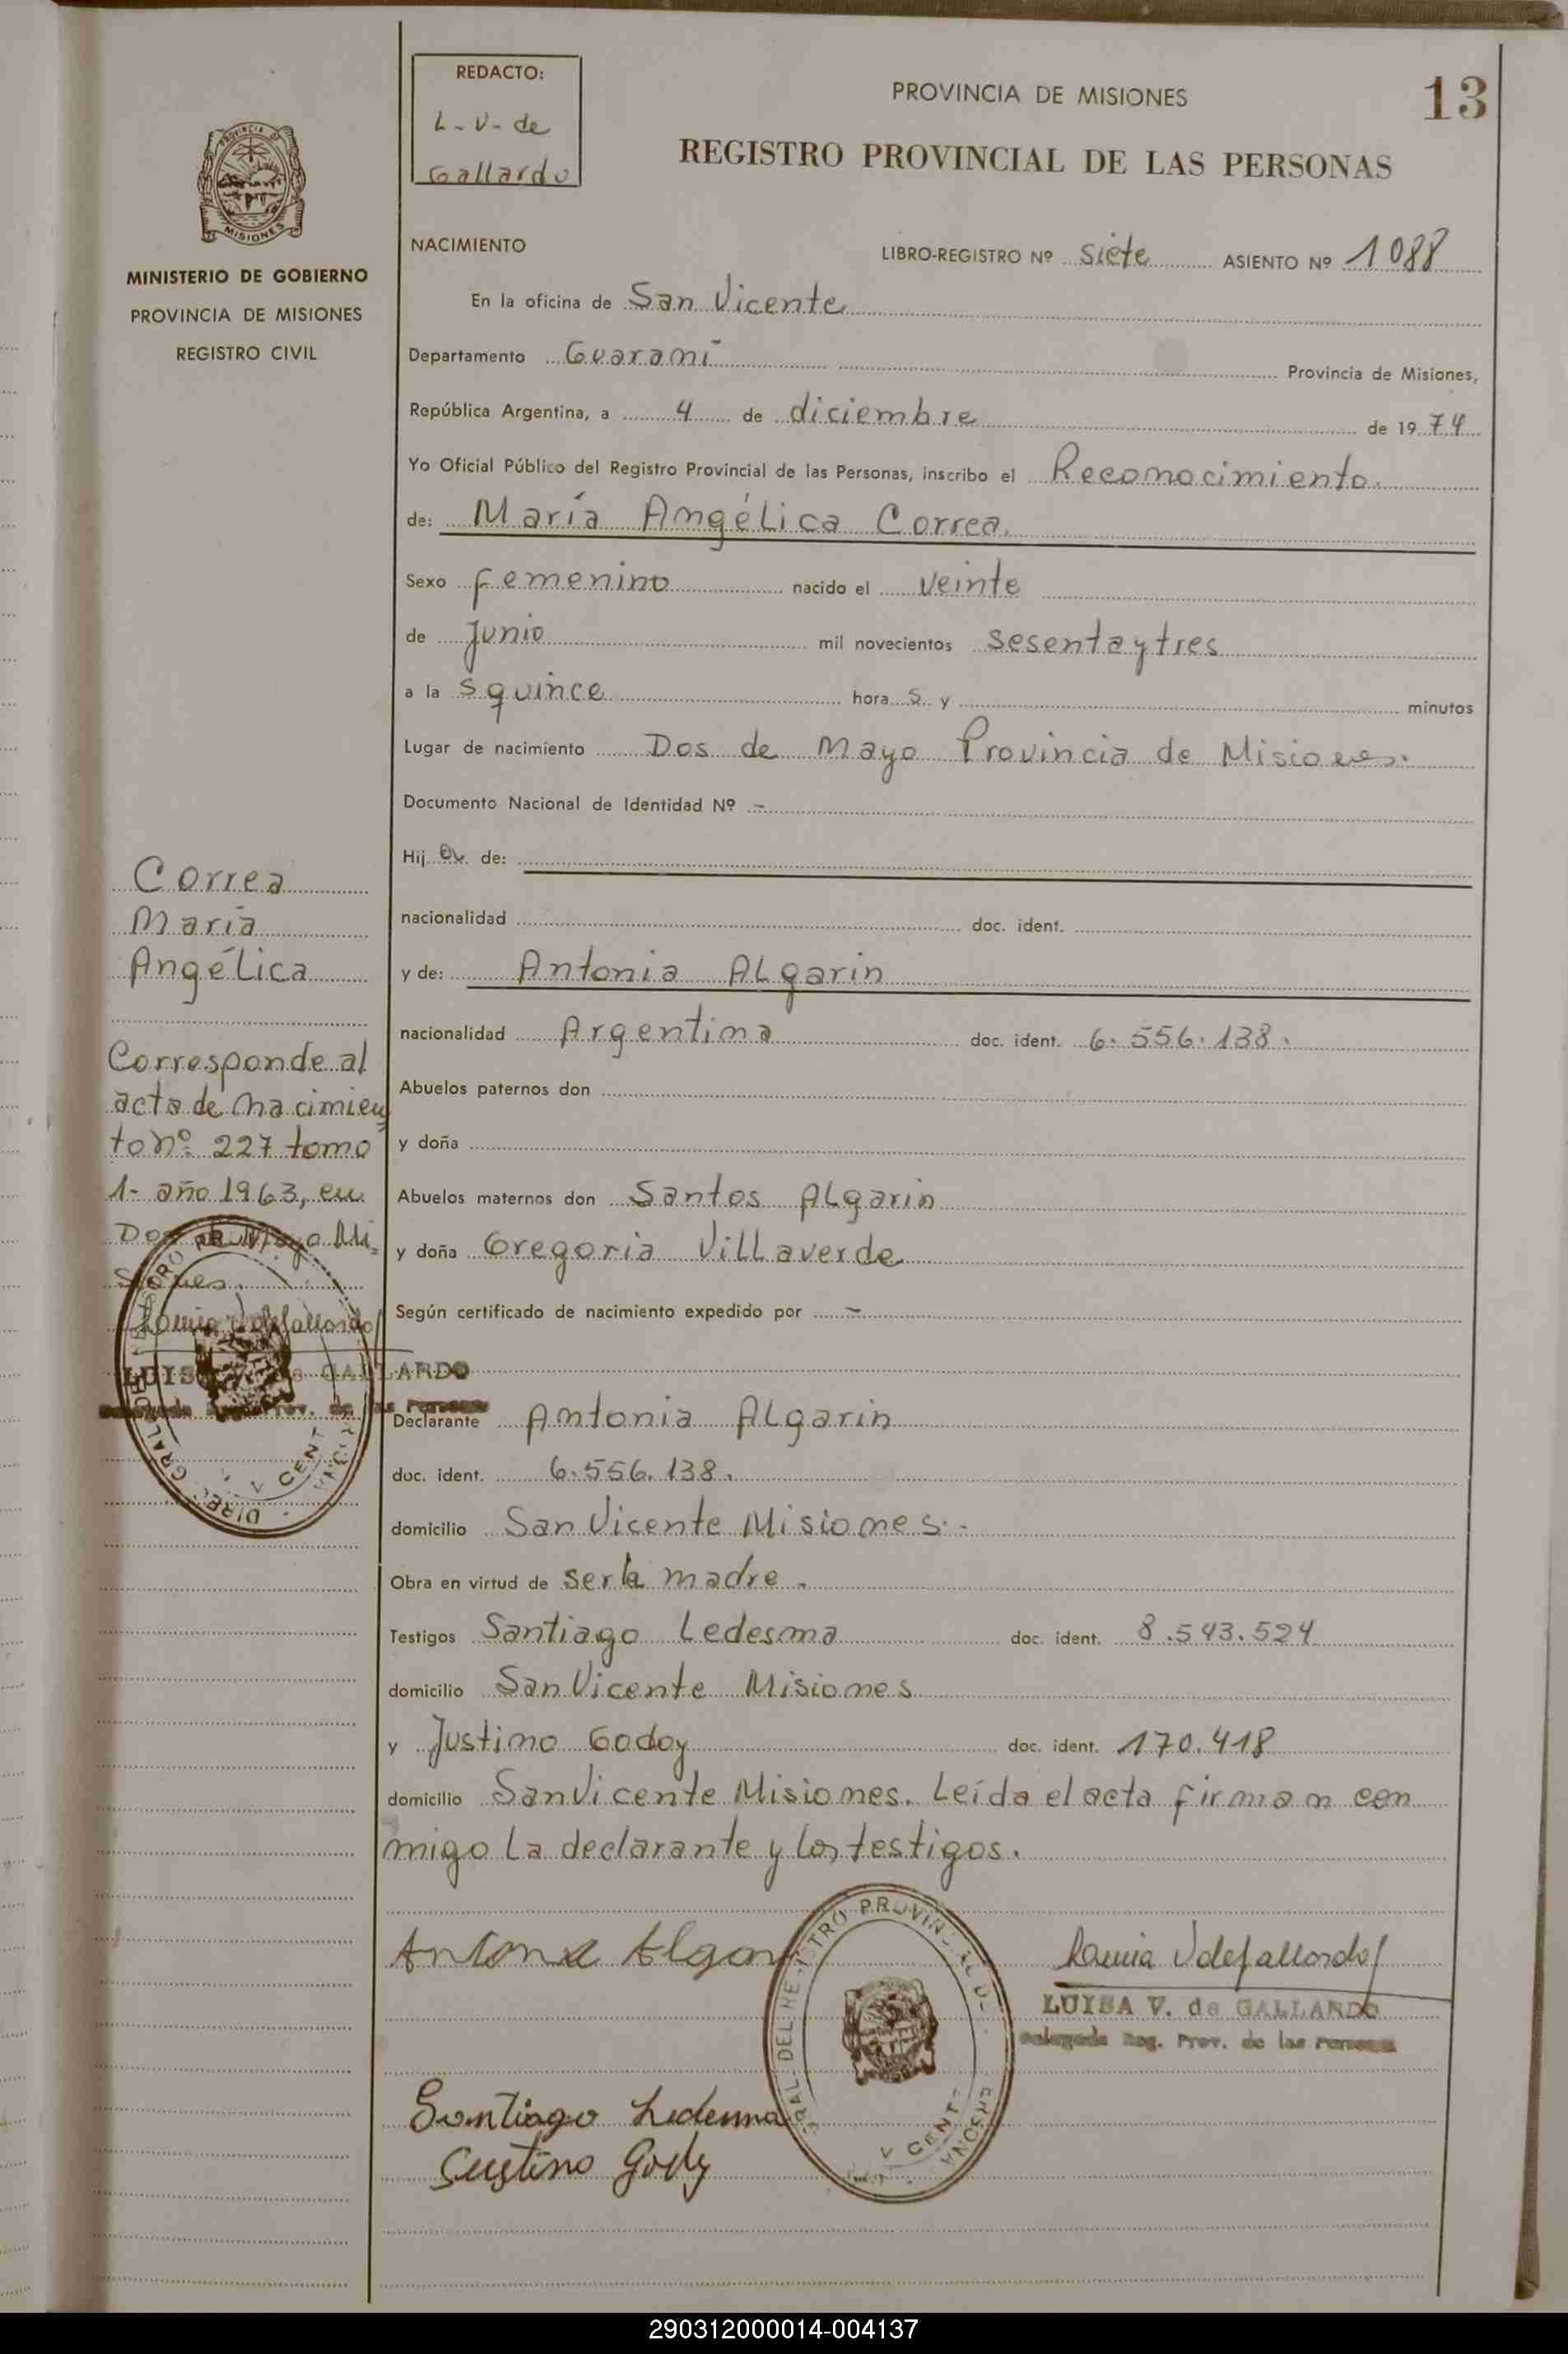 REDACTO:
L-V-de
Gallardo
PROVINCIA DE MISIONES
13
REGISTRO PROVINCIAL DE LAS PERSONAS
PROVINCIA DE
MISIONES
MINISTERIO DE GOBIERNO
PROVINCIA DE MISIONES
REGISTRO CIVIL
NACIMIENTO
LIBRO-REGISTRO Nº siete ASIENTO Nº 1088
En la oficina de San Vicente
Departamento Guaraní Provincia de Misiones,
República Argentina, a 4 de diciembre de 1974
Yo Oficial Público del Registro Provincial de las Personas, inscribo el Reconocimiento.
de: María Angélica Correa.
Sexo femenino nacido el veinte
de Junio mil novecientos sesenta y tres
a la s quince hora s y minutos
Lugar de nacimiento Dos de Mayo Provincia de Misiones.
Documento Nacional de Identidad Nº -
Hij a de:
nacionalidad doc. ident.
y de: Antonia Algarin
nacionalidad Argentina doc. ident. 6.556.138.
Abuelos paternos don
y doña
Abuelos maternos don Santos Algarin
y doña Gregoria Villaverde
Según certificado de nacimiento expedido por -
Declarante Antonia Algarin
doc. ident. 6.556.138.
domicilio San Vicente Misiones.-
Obra en virtud de ser la madre.
Testigos Santiago Ledesma doc. ident. 8.543.524
domicilio San Vicente Misiones
y Justino Godoy doc. ident. 170.418
domicilio San Vicente Misiones. Leída el acta firman con
migo la declarante y los testigos.
Correa
María
Angélica
Corresponde al
acta de nacimien
to nº 227 tomo
1- año 1963, en
Dos de Mayo Mi-
siones.
LUISA V. de GALLARDO
Delegada Reg. Prov. de las Personas
Antonia Algarin
LUISA V. de GALLARDO
Delegada Reg. Prov. de las Personas
Santiago Ledesma
Justino Godoy
290312000014-004137